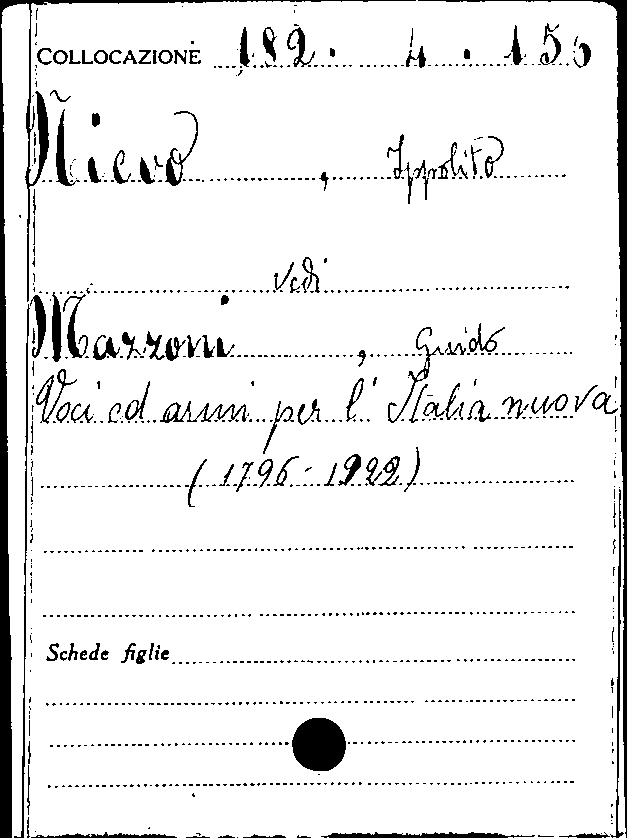 COLLOCAZIONE 182. 4. 156
Nievo, Ippolito
Vedi
Mazzoni, Guido
Voci ed armi per l'Italia nuova
(1796-1922)
Schede figlie